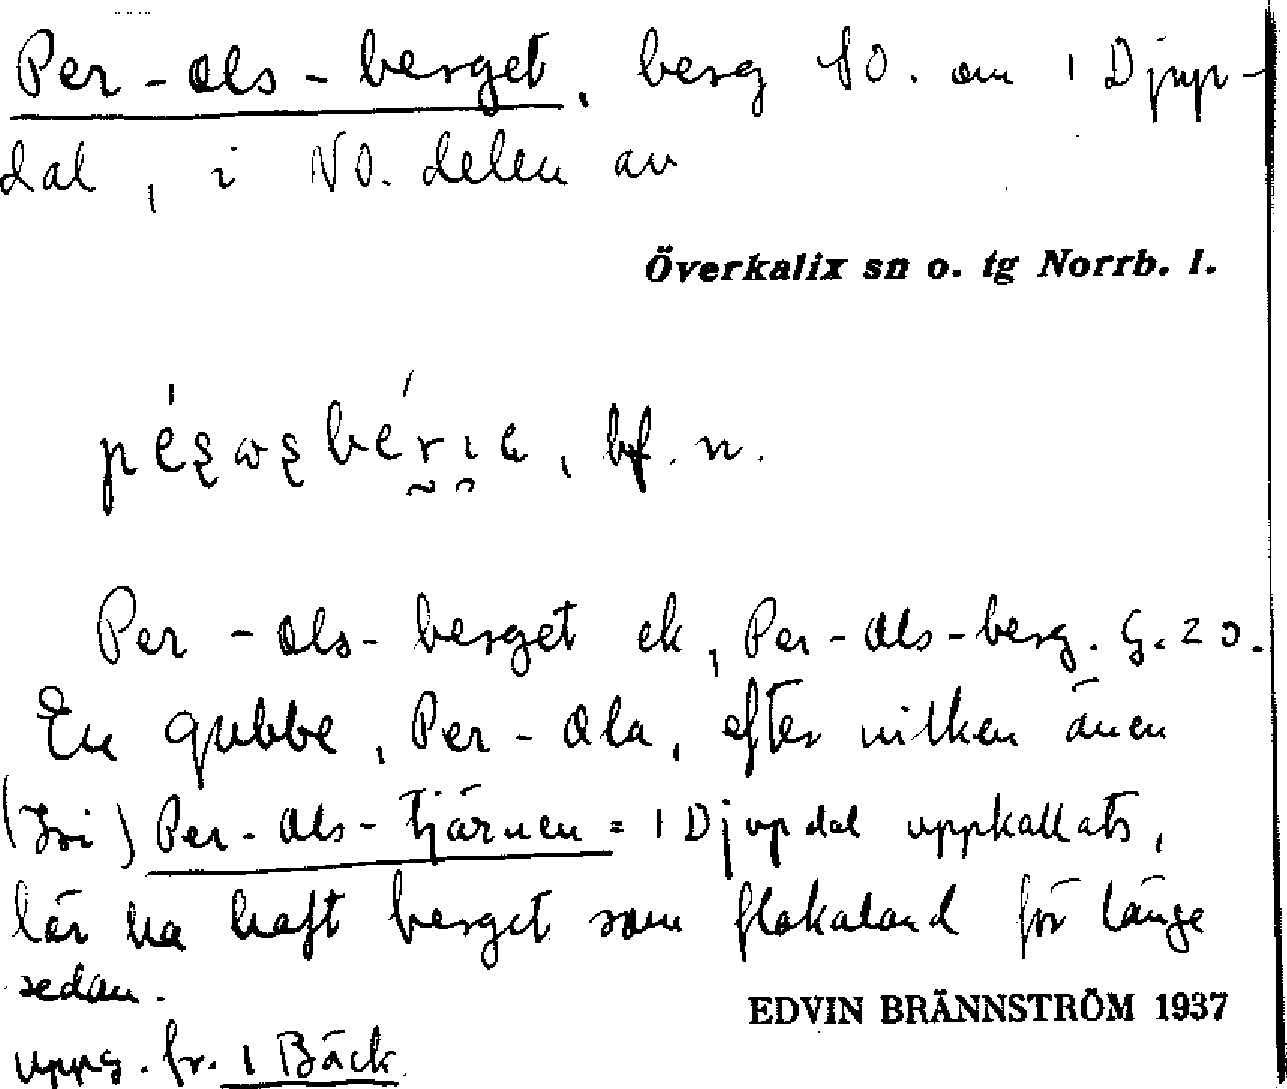 Per-Ols-berget, berg SO. om 1 Djup-
dal, i NO. delen av
Överkalix sn o. tg Norrb. l.
bf. n.
Per-Ols-berget ek, Per-Ols-berg. G. 20.
En gubbe, Per-Ola, efter vilken även
Per-Ols-tjärnen = 1 Djupdal uppkallats,
lär ha haft berget som flakaland för länge
sedan.
EDVIN BRÄNNSTRÖM 1937
uppg. fr. 1 Bäck